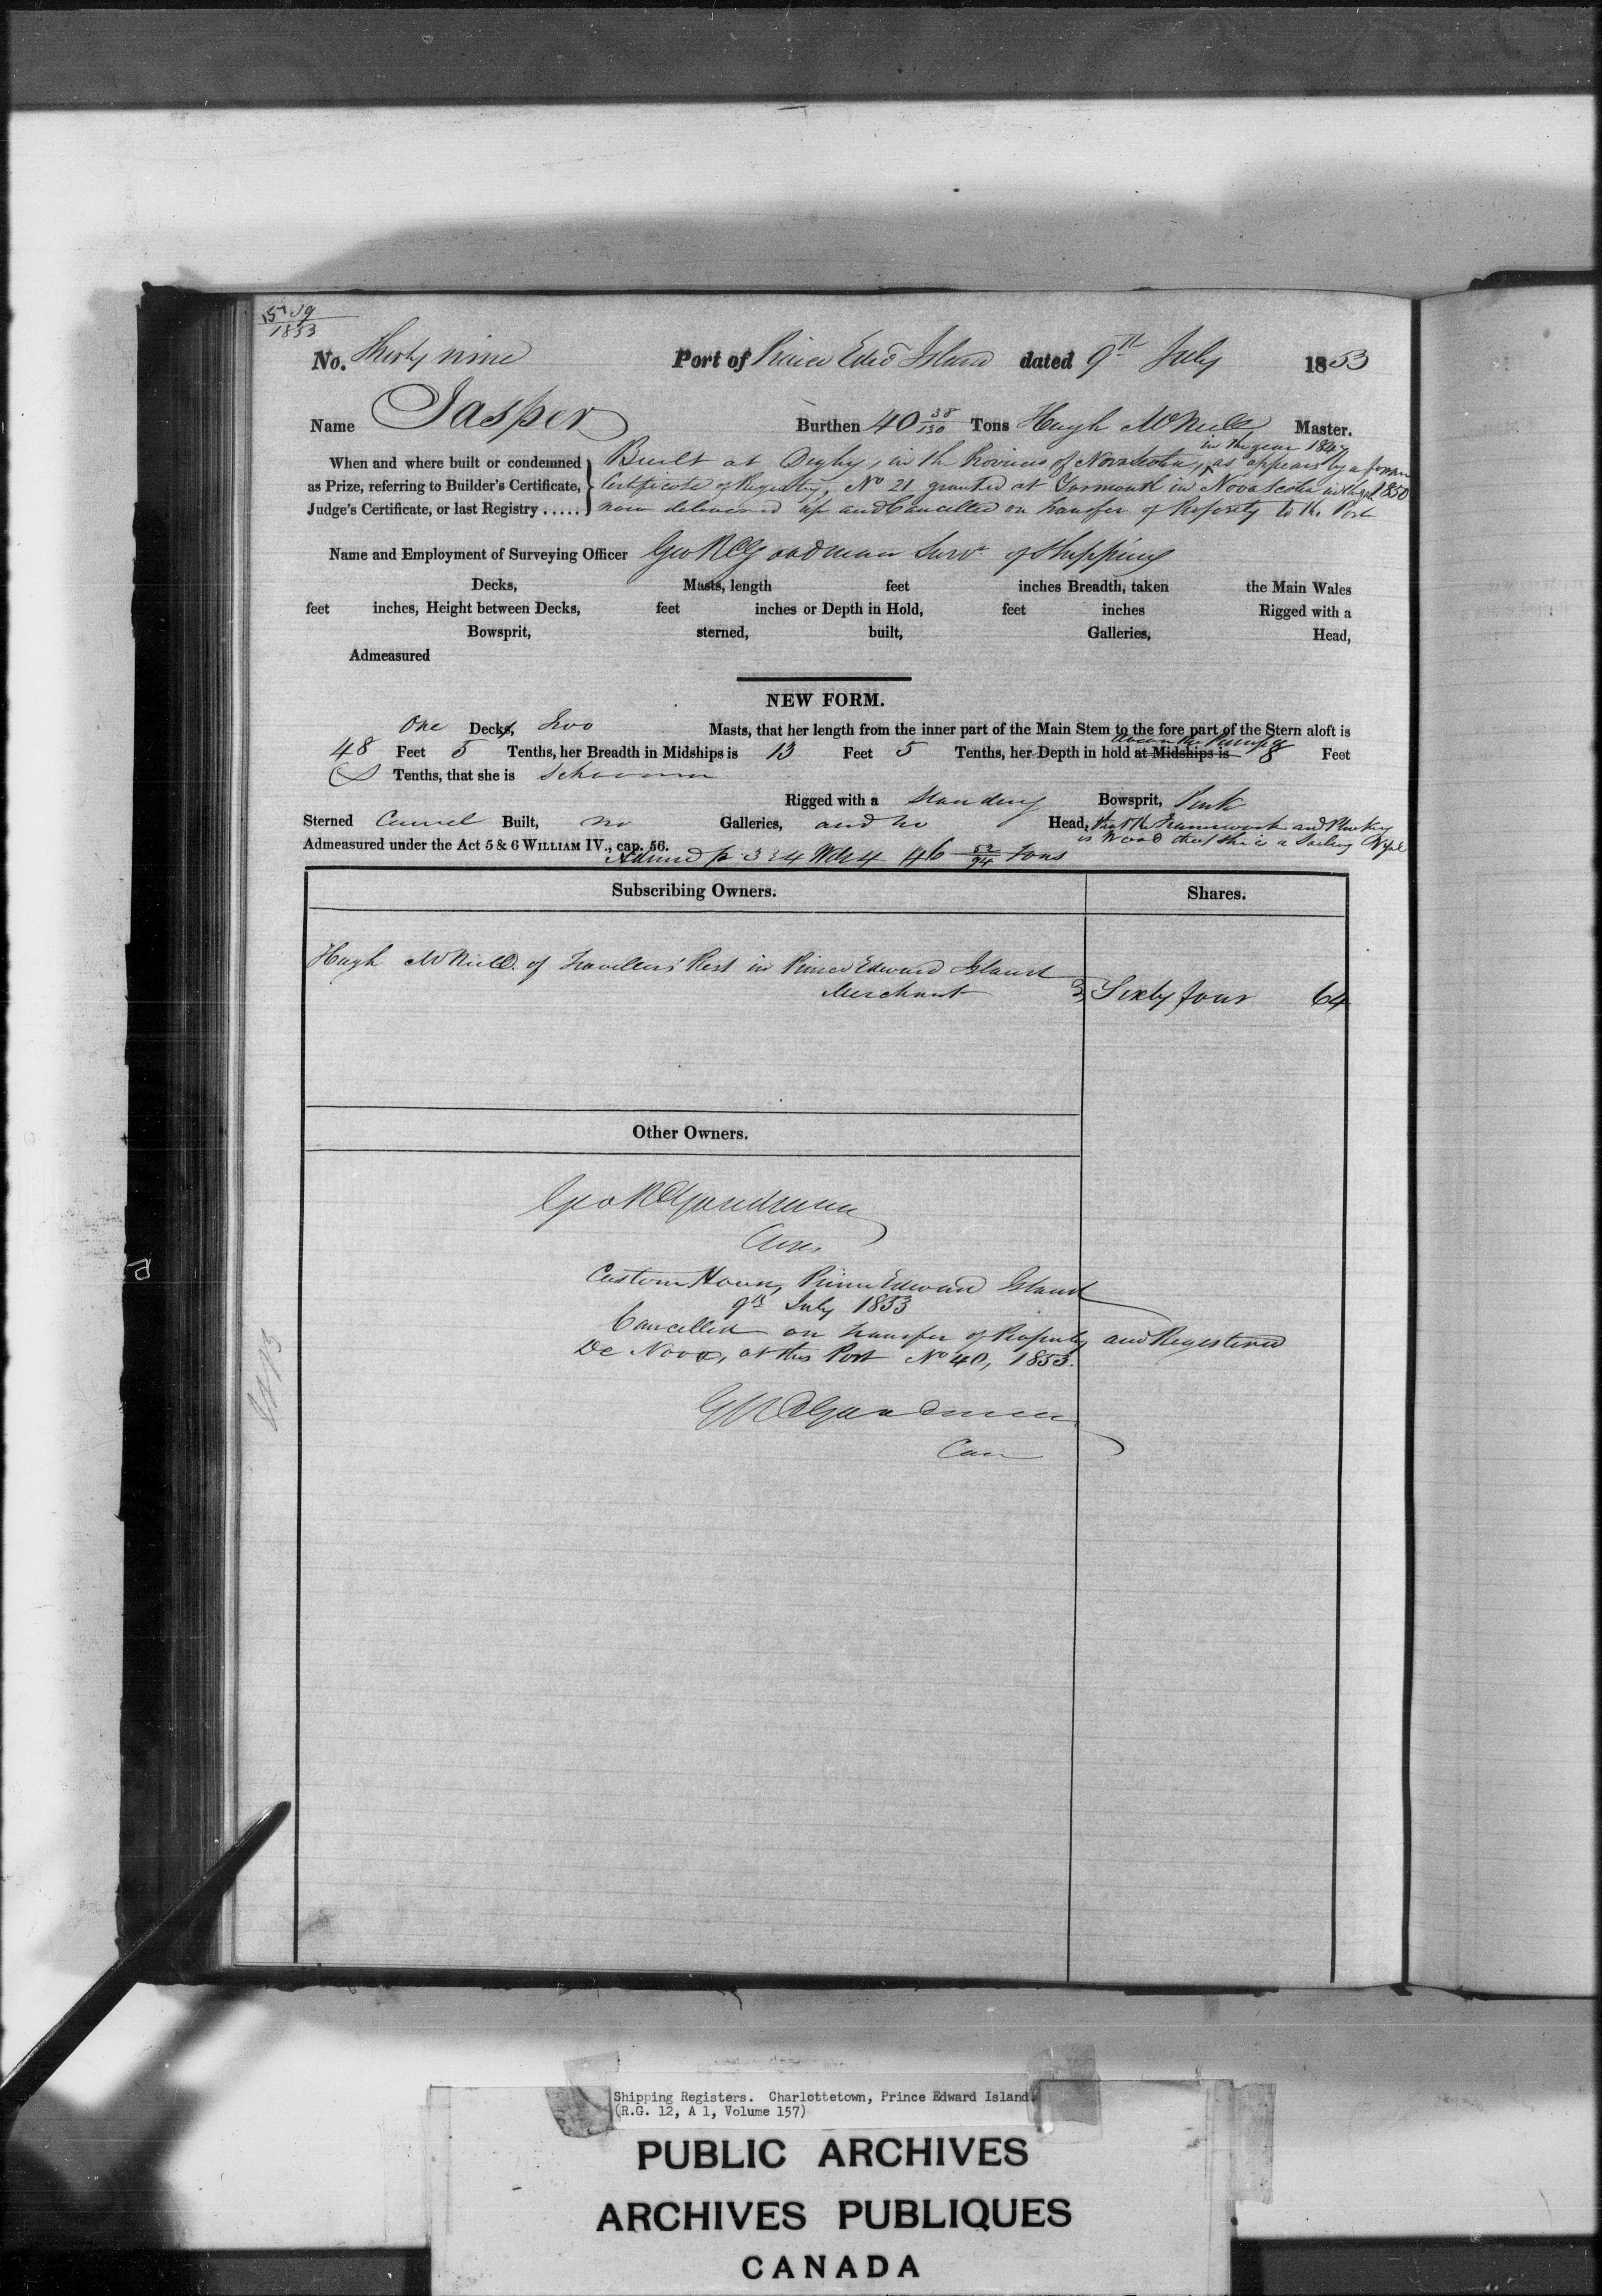 39
1853
No. Thirty nine Port of Prince Edwd Island dated 9th July 1853
Name Jasper Burthen 40 38/130 Tons Hugh McNeill Master.
in the year 184
When and where built or condemned Built at Digby, in the Province of Nova Scotia, as appears by a former
as Prize, referring to Builder's Certificate, Certificate of Registry, No 21 granted at Yarmouth in Nova Scotia 1850
Judge's Certificate, or last Registry ..... now delivered up and Cancelled on transfer of Property to this Port
Name and Employment of Surveying Officer Geo R Goodman Survr of Shipping
Decks, Masts, length feet inches Breadth, taken the Main Wales
feet inches, Height between Decks, feet inches or Depth in Hold, feet inches Rigged with a
Bowsprit, sterned, built, Galleries, Head,
Admeasured
NEW FORM.
One Decks, Two Masts, that her length from the inner part of the Main Stem to the fore part of the Stern aloft is
48 Feet 5 Tenths, her Breadth in Midships is 13 Feet 5 Tenths, her Depth in hold at Midships is 8 Feet
Tenths, that she is Schooner
Rigged with a Standing Bowsprit, Pink
Sterned Carvel Built, no Galleries, and no Head, that the Framework and Planking
is Wood that she is a Sailing Vessel
Admeasured under the Act 5 & 6 WILLIAM IV., cap. 56.
Admd pr 3 & 4 Wm 4 46 52/94 Tons
Subscribing Owners. Shares.
Hugh McNeill of Travellers' Rest in Prince Edward Island
Merchant Sixty four 64
Other Owners.
Geo R Goodman
Custom House, Prince Edward Island
9th July 1853
Cancelled on transfer of Property and Registered
De Novo, at this Port No 40, 1853.
G R Goodman
Shipping Registers. Charlottetown, Prince Edward Island.
(R.G. 12, A 1, Volume 157)
PUBLIC ARCHIVES
ARCHIVES PUBLIQUES
CANADA